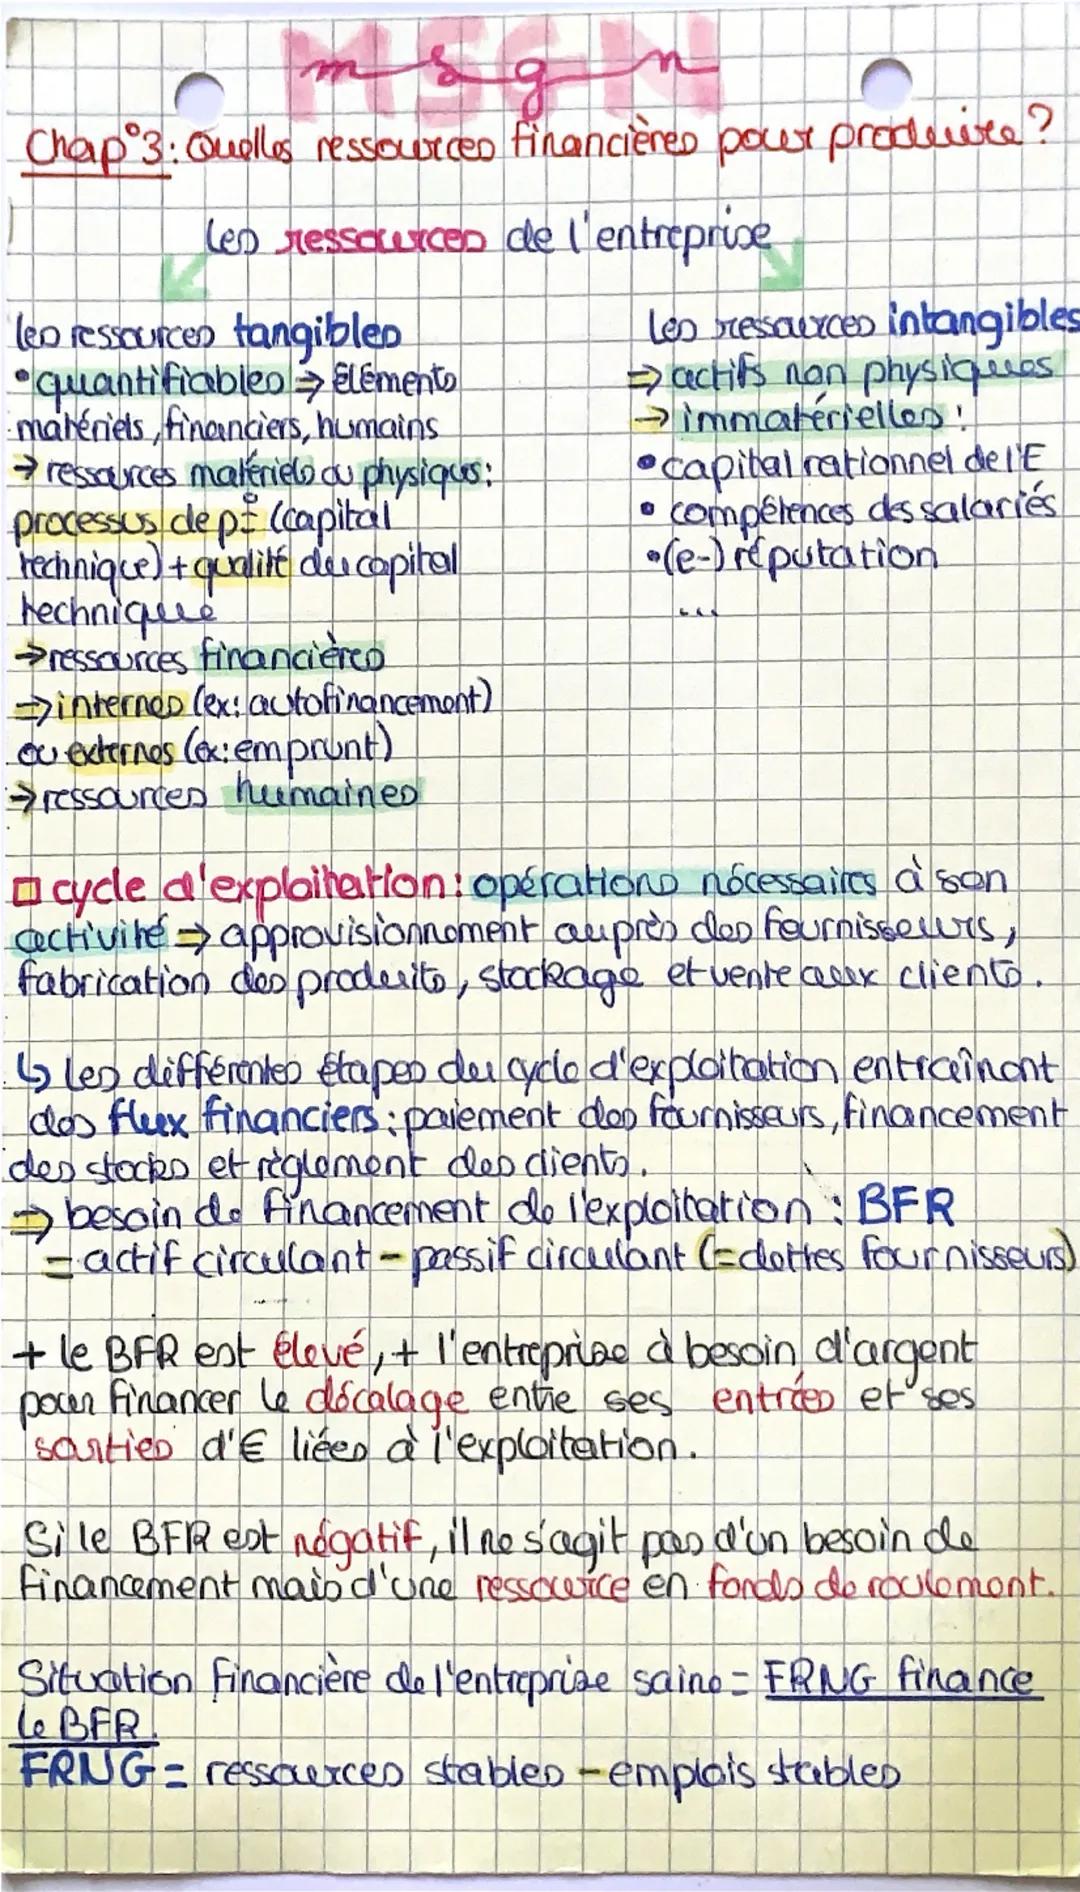 MSGN
msgn
Chap°3: Quelles ressources financières pour produire ?
Les ressources de l'entreprise
les ressources tangibles
• quantifiables ⇒ Eléments
matériels, financiers, humains
→ ressources matériels ou physiques:
processus de p° (capital
technique) + qualité du capital
technique
→ ressources financières
⇒ internes (ex: autofinancement)
ou externes (ex: emprunt)
→ ressources humaines
Les ressources intangibles
⇒ actifs non physiques
→ immatérielles :
• capital rationnel de l'E
• compétences des salariés
• (e-) réputation
...
□ cycle d'exploitation: opérations nécessaires à son
activité ⇒ approvisionnement auprès des fournisseurs,
fabrication des produits, stockage et vente aux clients.
↳ Les différentes étapes du cycle d'exploitation entraînent
des flux financiers : paiement des fournisseurs, financement
des stocks et règlement des clients.
⇒ besoin de financement de l'exploitation : BFR
= actif circulant - passif circulant (= dettes fournisseurs)
+ le BFR est élevé, + l'entreprise à besoin d'argent
pour financer le décalage entre ses entrées et ses
sorties d'€ liées à l'exploitation.
Si le BFR est négatif, il ne s'agit pas d'un besoin de
financement mais d'une ressource en fonds de roulement.
Situation financière de l'entreprise saine = FRNG finance
le BFR.
FRNG = ressources stables - emplois stables